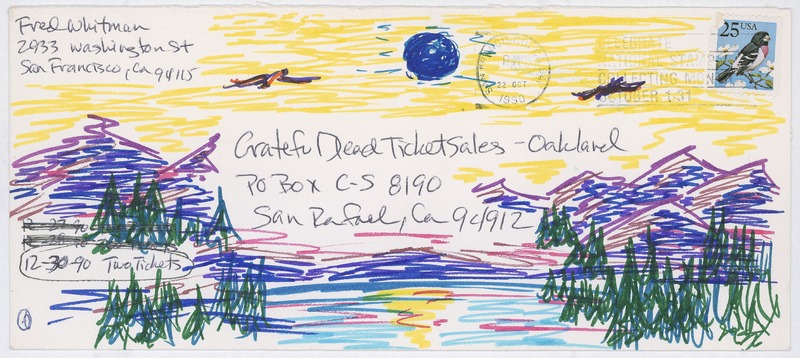 Fred Whitman
2933 Washington St
San Francisco, Ca 94115
25 USA
22 OCT
1990
CELEBRATE
NATIONAL STAMP
COLLECTING MONTH
OCTOBER 1-31
Grateful Dead Ticket Sales - Oakland
PO Box C-S 8190
San Rafael, Ca 94912
12-27-90
12-28-90
12-30-90 Two Tickets